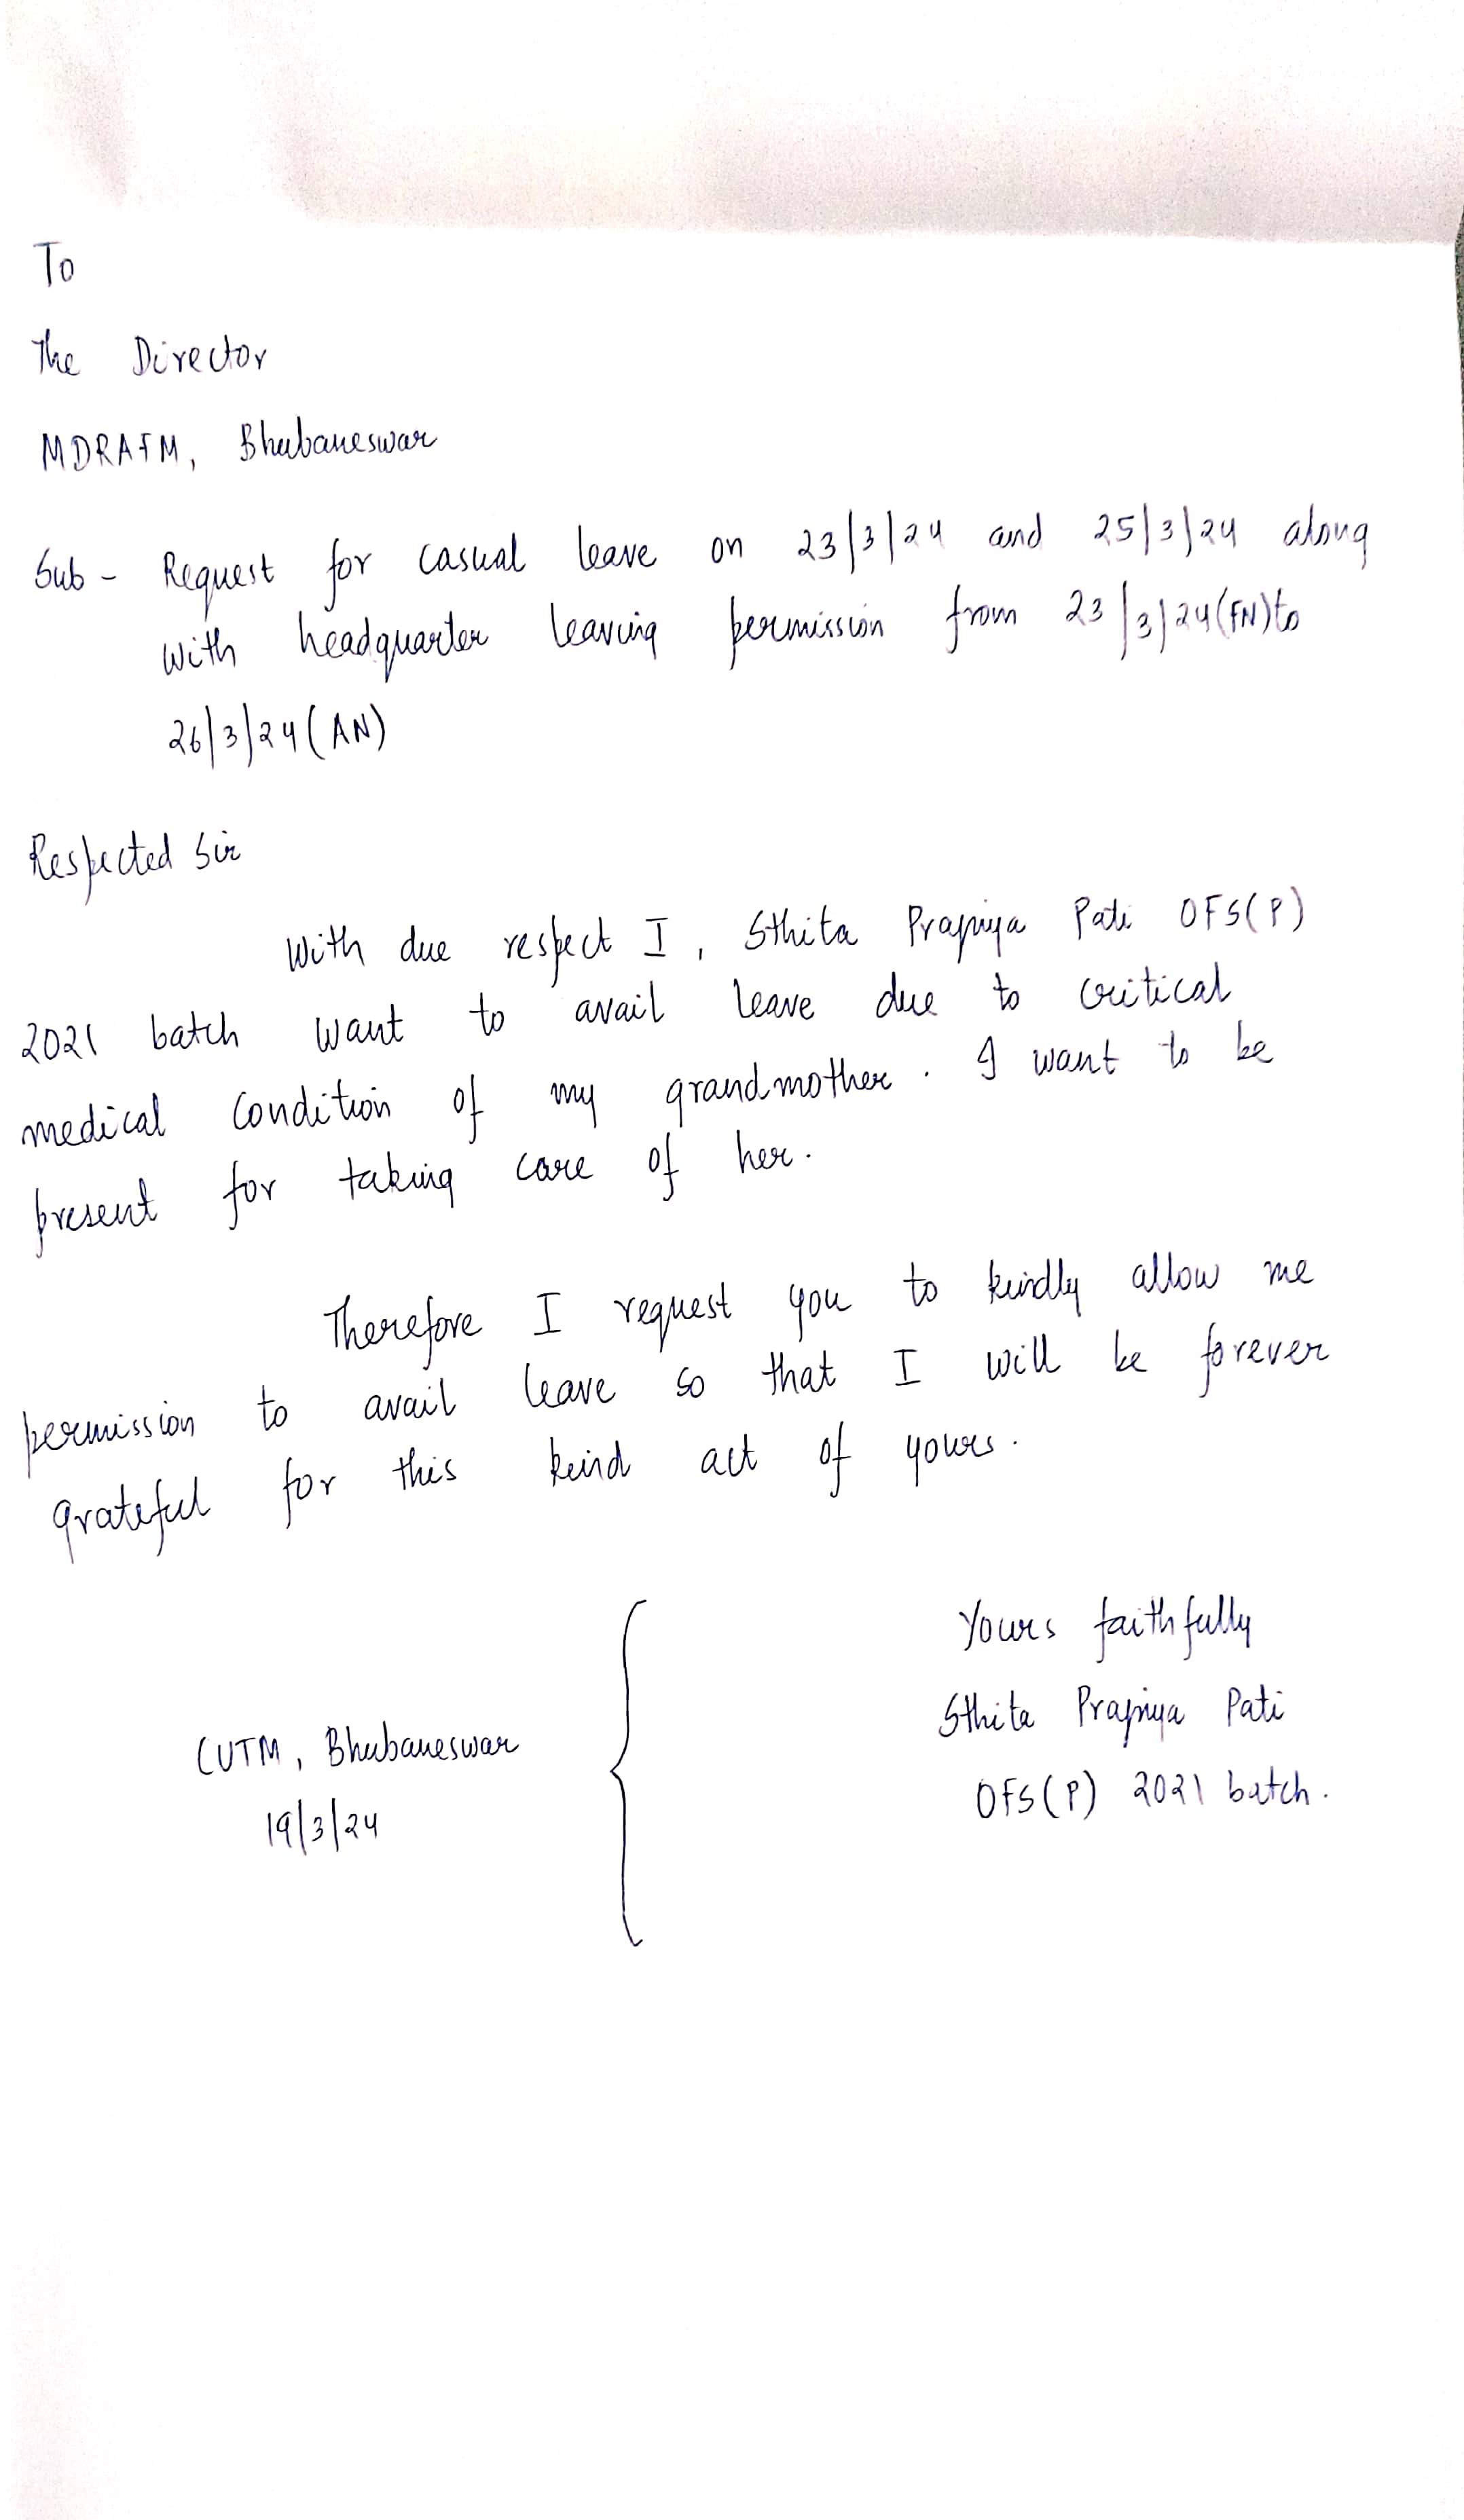 To
The Director
MDRAFM, Bhubaneswar
Sub - Request for casual leave on 23/3/24 and 25/3/24 along
with headquarter leaving permission from 23/3/24(FN) to
26/3/24(AN)
Respected Sir
With due respect I, Sthita Prajniya Pati OFS(P)
2021 batch want to avail leave due to critical
medical condition of my grandmother. I want to be
present for taking care of her.
Therefore I request you to kindly allow me
permission to avail leave so that I will be forever
grateful for this kind act of yours.
Yours faithfully
Sthita Prajniya Pati
OFS(P) 2021 batch.
CUTM, Bhubaneswar
19/3/24